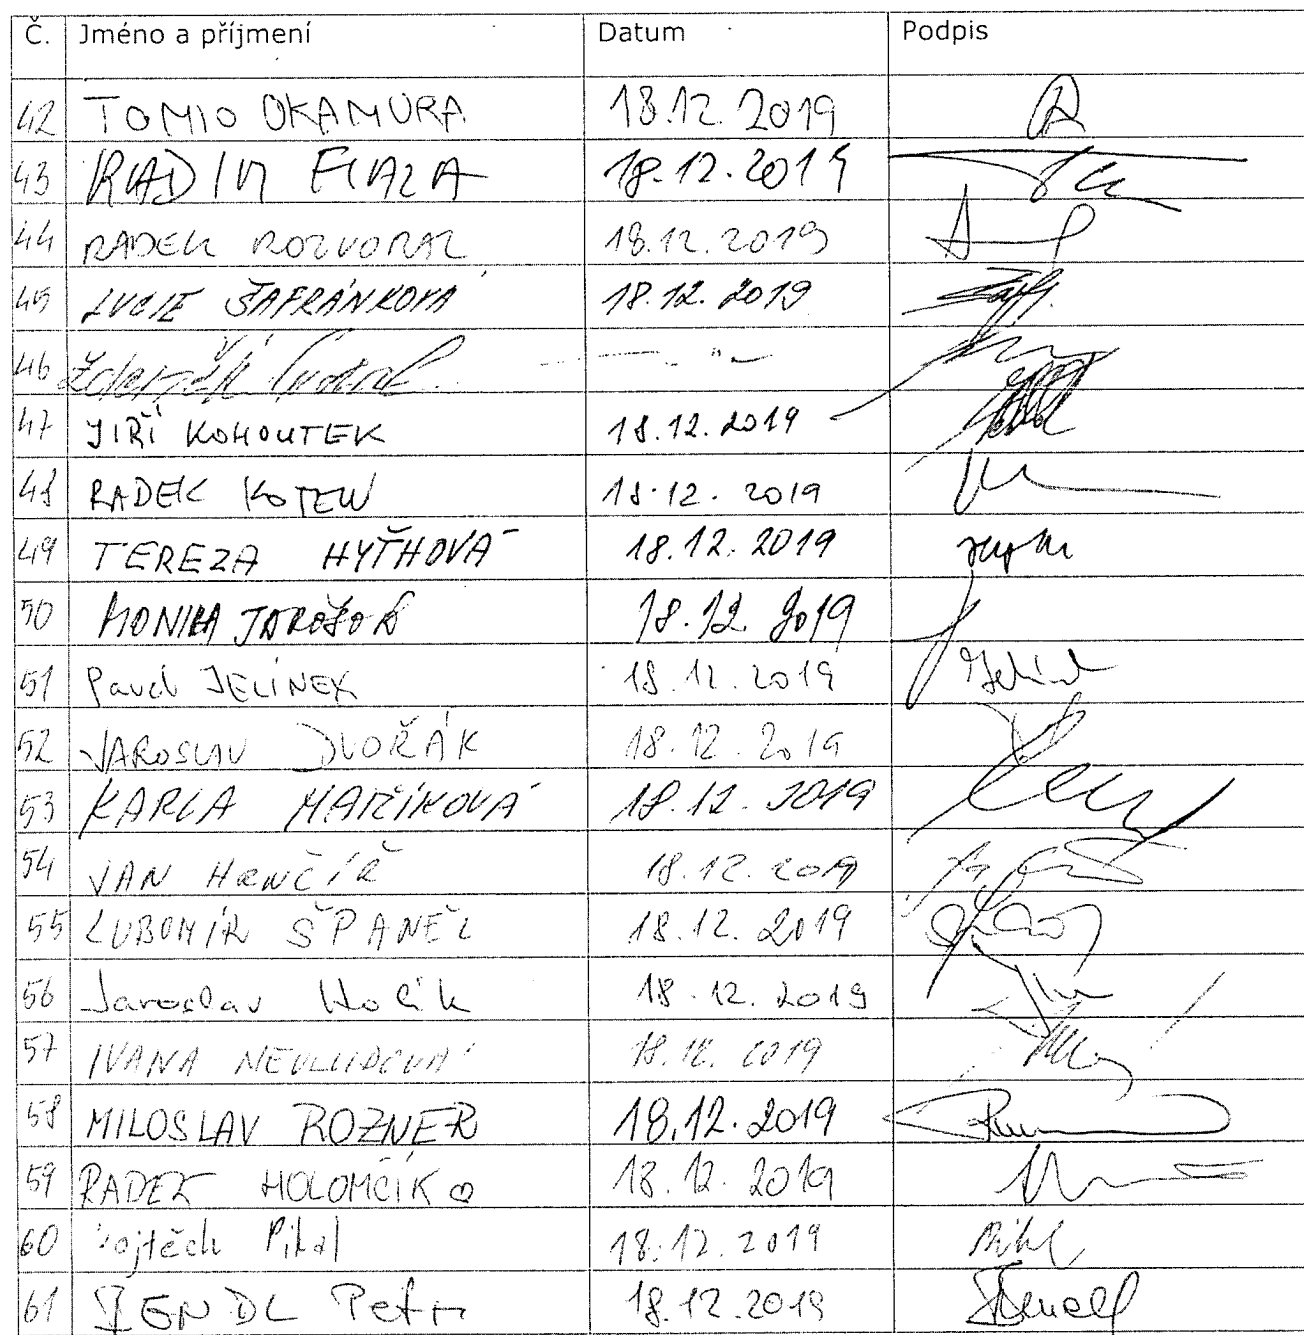 Č. Jméno a příjmení Datum Podpis
42 TOMIO OKAMURA 18.12.2019
43 RADIM FIALA 18.12.2019
44 RADEK ROZVORAL 18.12.2019
45 LUCIE ŠAFRÁNKOVÁ 18.12.2019
46 —〃—
47 JIŘÍ KOHOUTEK 18.12.2019
48 RADEK KOTEN 18.12.2019
49 TEREZA HYŤHOVÁ 18.12.2019
50 MONIKA JAROŠOVÁ 18.12.2019
51 Pavel JELÍNEK 18.12.2019
52 JAROSLAV DVOŘÁK 18.12.2019
53 KARLA MAŘÍKOVÁ 18.12.2019
54 JAN HRNČÍŘ 18.12.2019
55 LUBOMÍR ŠPANĚL 18.12.2019
56 Jaroslav Holík 18.12.2019
57 IVANA NEVLUDOVÁ 18.12.2019
58 MILOSLAV ROZNER 18.12.2019
59 RADEK HOLOMČÍK 18.12.2019
60 Vojtěch Pikal 18.12.2019 Pikal
61 BENDL Petr 18.12.2019 Bendl